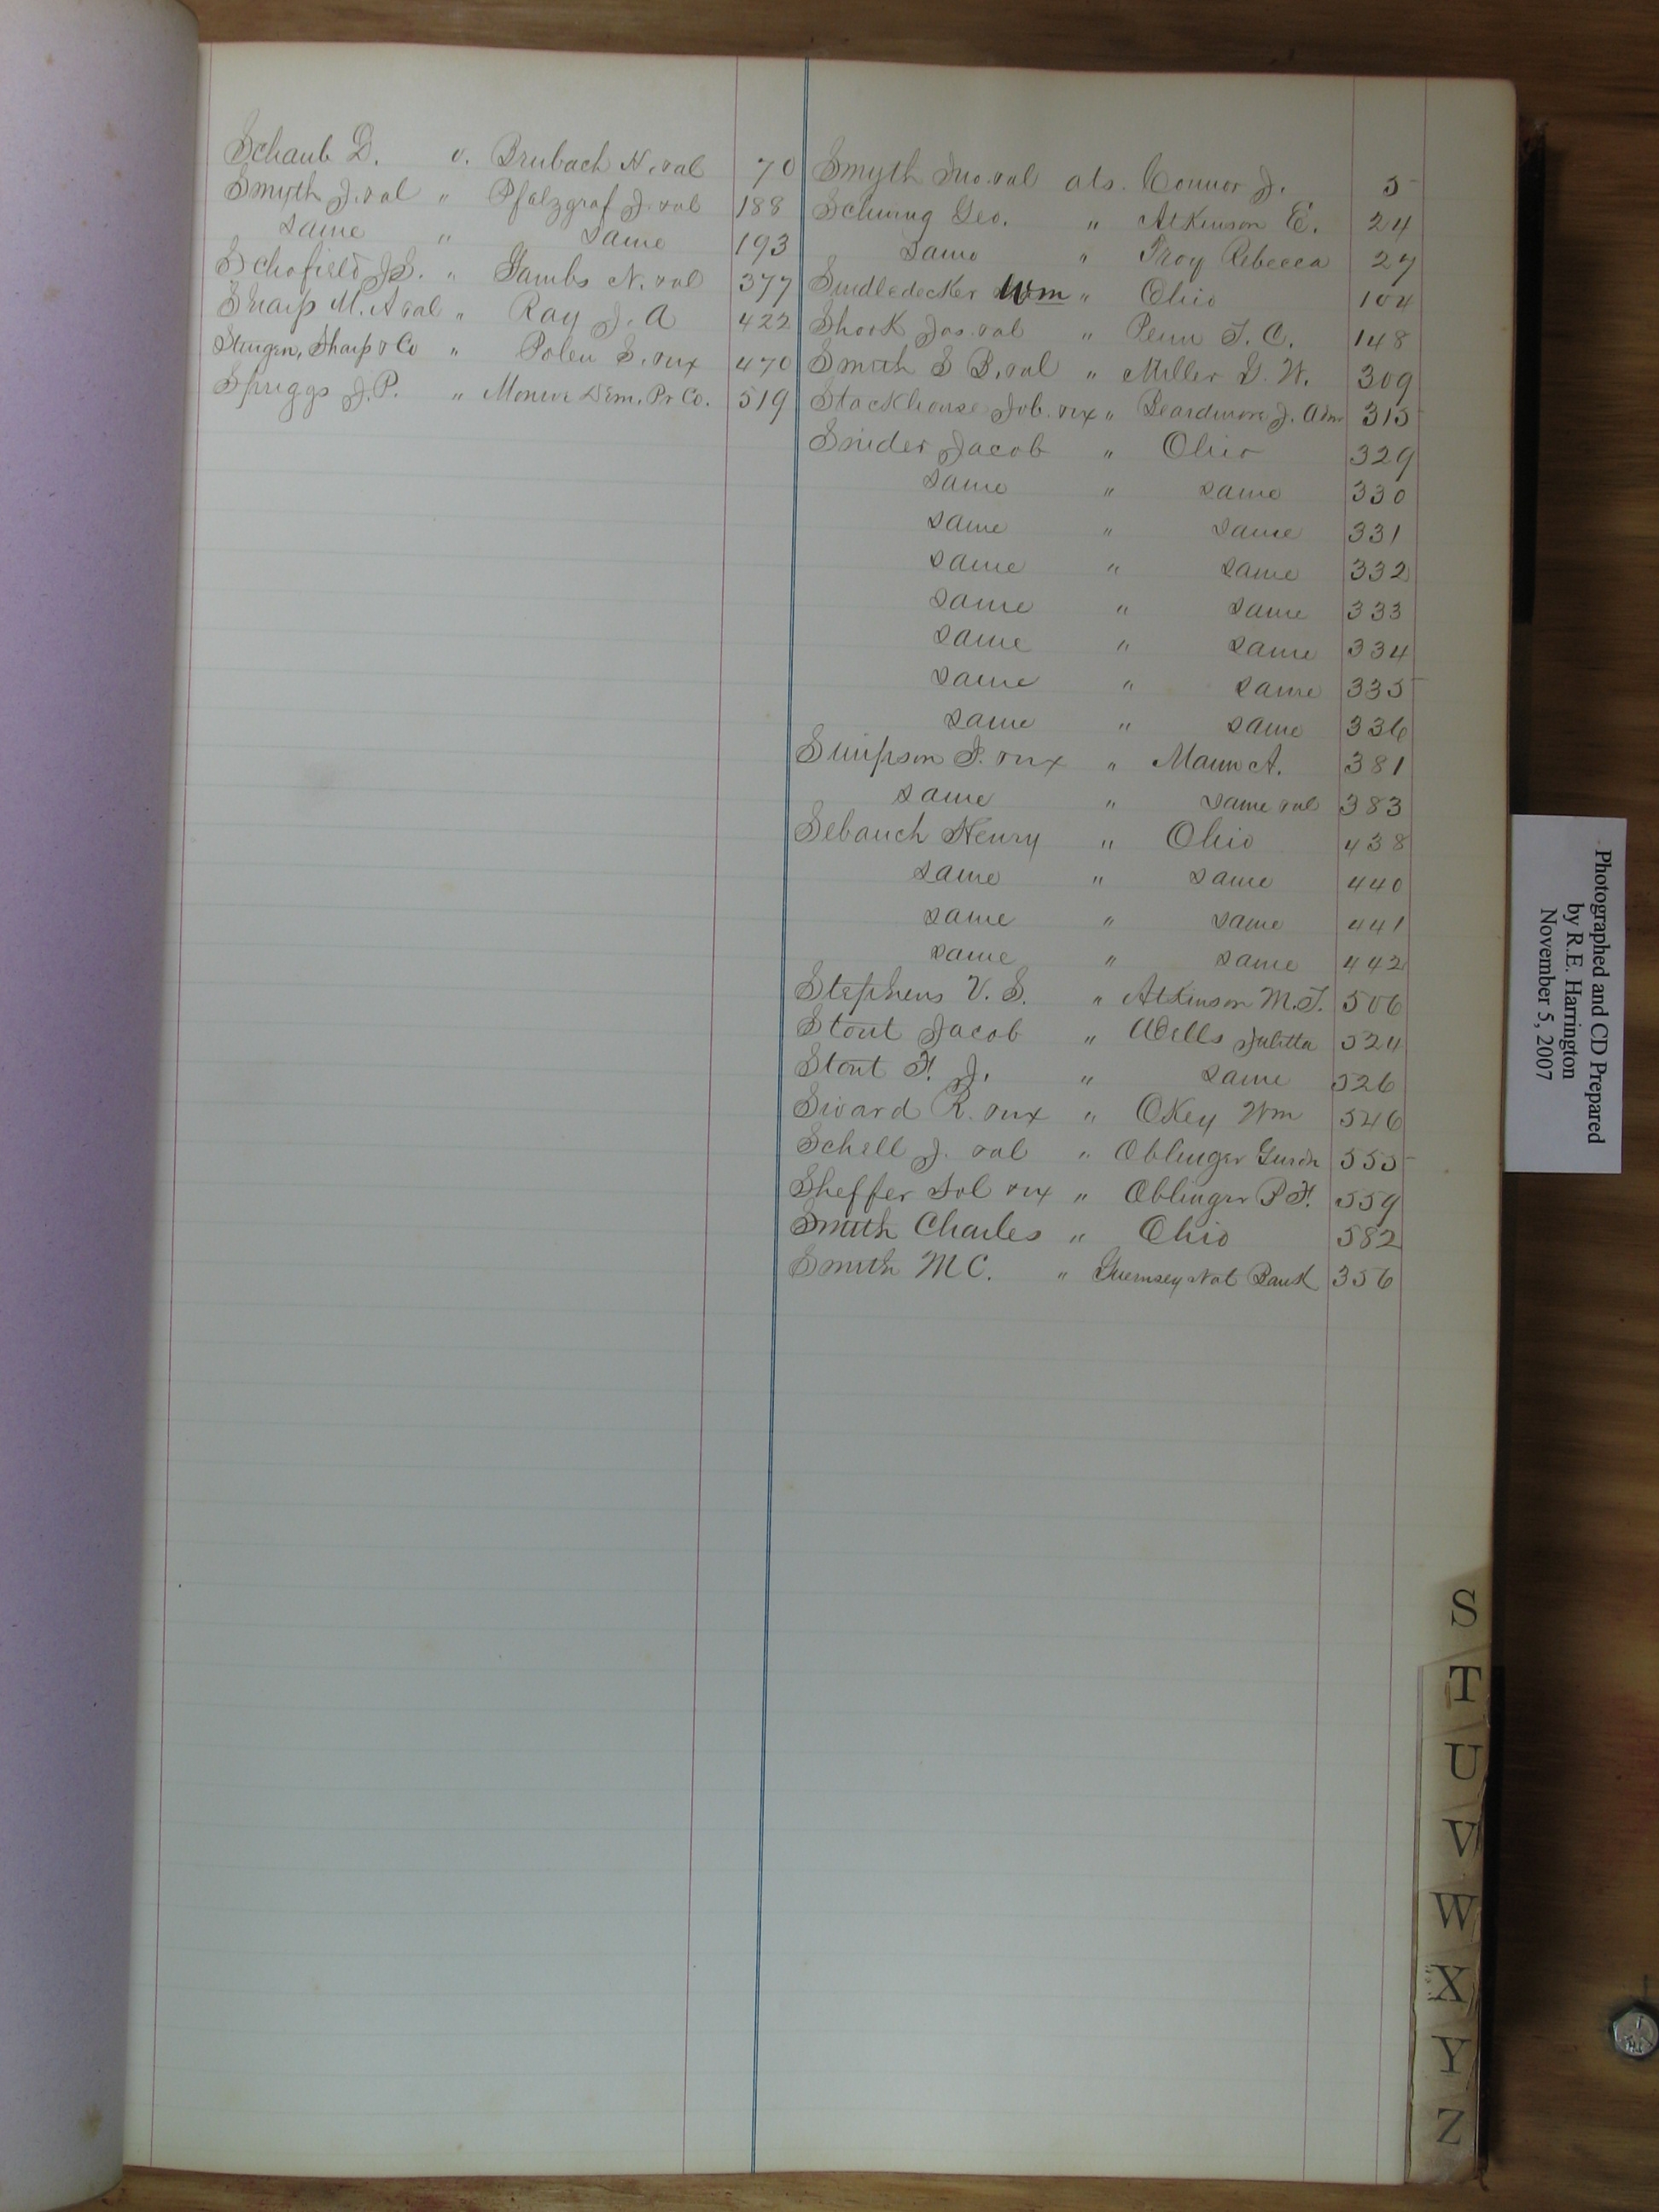 Schaub D. v. Brubach N. val 70
Smyth J. val " Pfalzgraf J. val 188
same " same 193
Schofield J.S. " Gambs N. val 377
Sharp M. A val " Ray J. A 422
Sharp & Co " Polen S. vux 470
Spriggs J. P. " Monroe Dem. Pr Co. 519
Smyth Jno. val ats. Connor J. 5
Schwng Geo. " Atkinson E. 24
same " Troy Rebecca 27
Sindledecker Wm " Ohio 104
Shook Jas. val " Penn T. C. 148
Smith S B. val " Miller G. W. 309
Stackhouse Job. vux " Beardmore J. Adm 315
Snider Jacob " Ohio 329
same " same 330
same " same 331
same " same 332
same " same 333
same " same 334
same " same 335
same " same 336
Simpson S. vux " Mann A. 381
same " same val 383
Sebauch Henry " Ohio 438
same " same 440
same " same 441
same " same 442
Stephens V. S. " Atkinson M. T. 506
Stout Jacob " Wells Julitta 524
Stout F. J. " same 526
Sivard R. vux " Okey Wm 546
Schell J. val " Oblinger Gurdn 555
Sheffer Sol vux " Oblinger P F. 559
Smith Charles " Ohio 582
Smith M C. " Guernsey Nat Bank 356
Photographed and CD Prepared
by R.E. Harrington
November 5, 2007
S
T
U
V
W
X
Y
Z